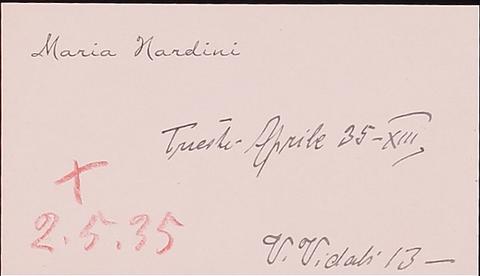 Maria Nardini
Trieste Aprile 35-XIII,
+
2.5.35
V. Vidali 13 —